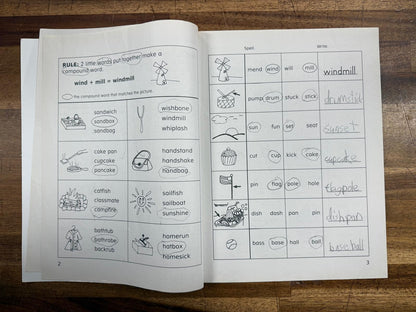 RULE: 2 little words put together make a
compound word.
wind + mill = windmill
the compound word that matches the picture.
sandwich
sandbox
sandbag
wishbone
windmill
whiplash
cake pan
cupcake
pancake
handstand
handshake
handbag
catfish
classmate
campfire
sailfish
sailboat
sunshine
bathtub
bathrobe
backrub
homerun
hatbox
homesick
2
Spell Write
mend wind will mill windmill
pump drum stuck stick drumstick
sun fun set seat sunset
cut cup kick cake cupcake
pin flag pole hole flagpole
dish dash pan pin dishpan
bass base hall ball baseball
3